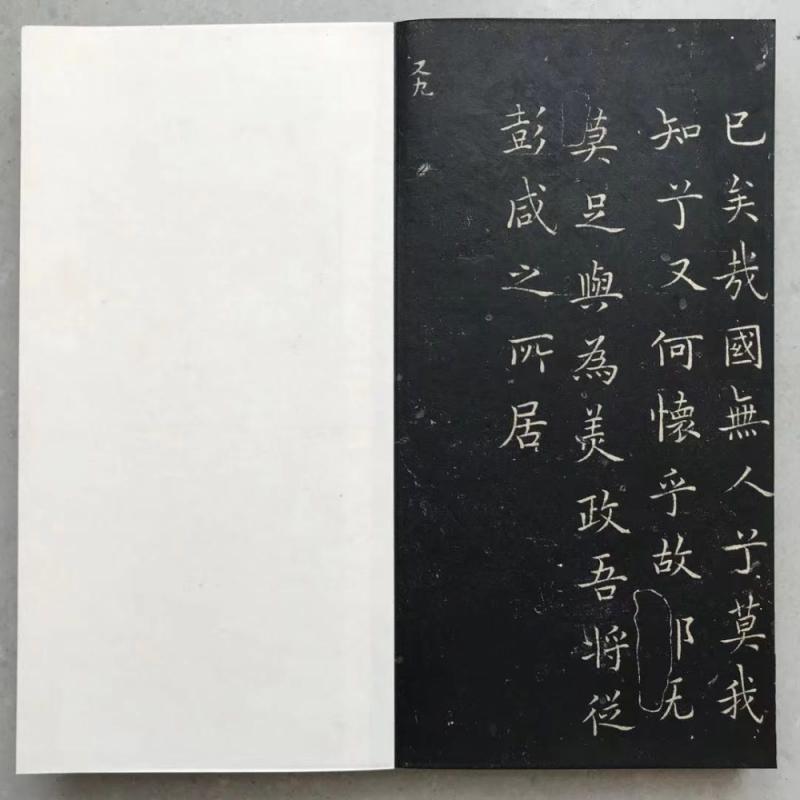 已矣哉國無人兮莫我
知兮又何懷乎故都既
莫足與為美政吾將從
彭咸之所居
又九